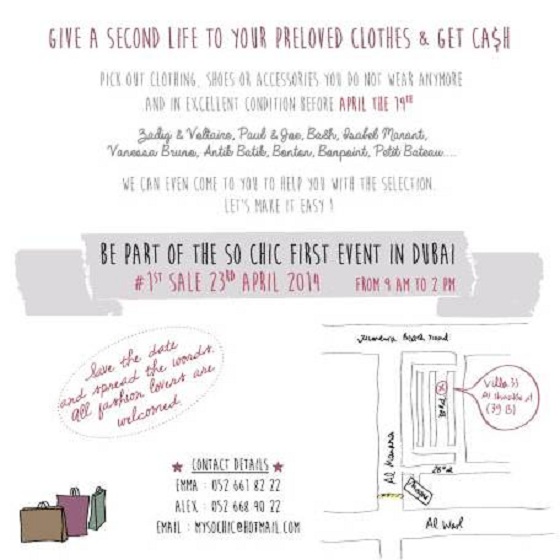 GIVE A SECOND LIFE TO YOUR PRELOVED CLOTHES & GET CA$H
PICK OUT CLOTHING, SHOES OR ACCESSORIES YOU DO NOT WEAR ANYMORE
AND IN EXCELLENT CONDITION BEFORE APRIL THE 19TH
Zadig & Voltaire, Paul & Joe, Bash, Isabel Marant,
Vanessa Bruno, Antik Batik, Bonton, Bonpoint, Petit Bateau...
WE CAN EVEN COME TO YOU TO HELP YOU WITH THE SELECTION.
LET'S MAKE IT EASY !
BE PART OF THE SO CHIC FIRST EVENT IN DUBAI
#1ST SALE 23RD APRIL 2014 FROM 9 AM TO 2 PM
Save the date
and spread the words.
All fashion lovers are
welcomed.
Jumeira Beach Road
Villa 33
(39 B)
Al Manara
Al Wasl
CONTACT DETAILS
EMMA : 052 661 82 22
ALEX : 052 668 90 22
EMAIL : MYSOCHIC@HOTMAIL.COM